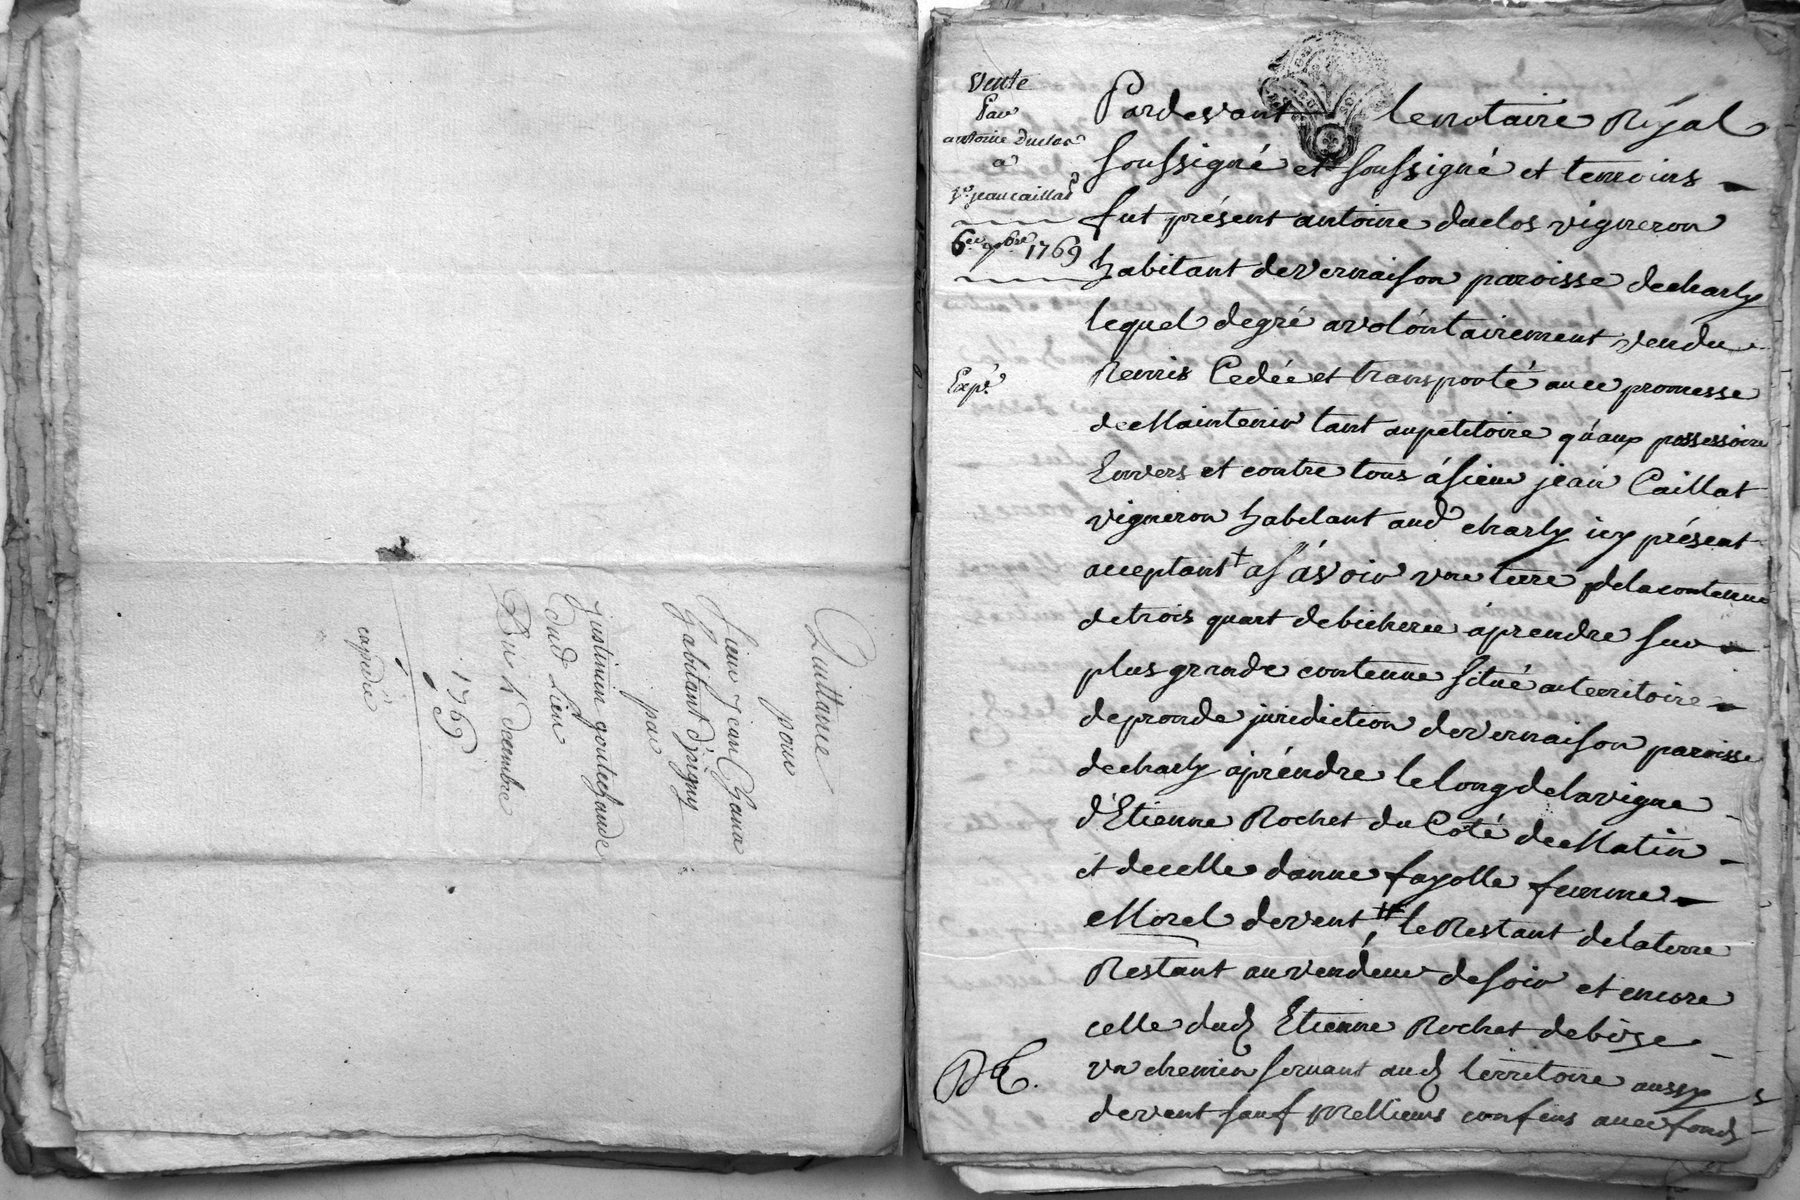 Quittance
pour
Sieur Jean
habitant d'jrigny
par
justinien
dud. Lieu
Du decembre
1769
expédié
Vente
Par
antoine Duclos
a
Sr. jean caillat
6e. 9bre 1769
Expé.
Pardevant le notaire Royal
soussigné et soussigné et temoins
fut présent antoine duclos vigneron
habitant de vernaison paroisse de charly
lequel de gré a volontairement vendu
Remis Cedée et transporté avec promesse
de Maintenir tant au petitoire qu'aux possessoire
Envers et contre tous à sieur jean Caillat
vigneron habitant aud. charly icy présent
acceptant + asávoir une terre de la contenue
de trois quart de bicherée à prendre sur
plus grande contenue situé au territoire
de pronde juridiction de vernaison paroisse
de charly à prendre le long de la vigne
d'Etienne Rochet du Coté de Matin
et de celle danne fayolle femme
Morel de vent, # le Restant de la terre
Restant au vendeur de soir et encore
celle dud. Etienne Rochet de bize
un chemin servant aud. territoire aussy
de vent sauf Meilleurs confins avec fonds